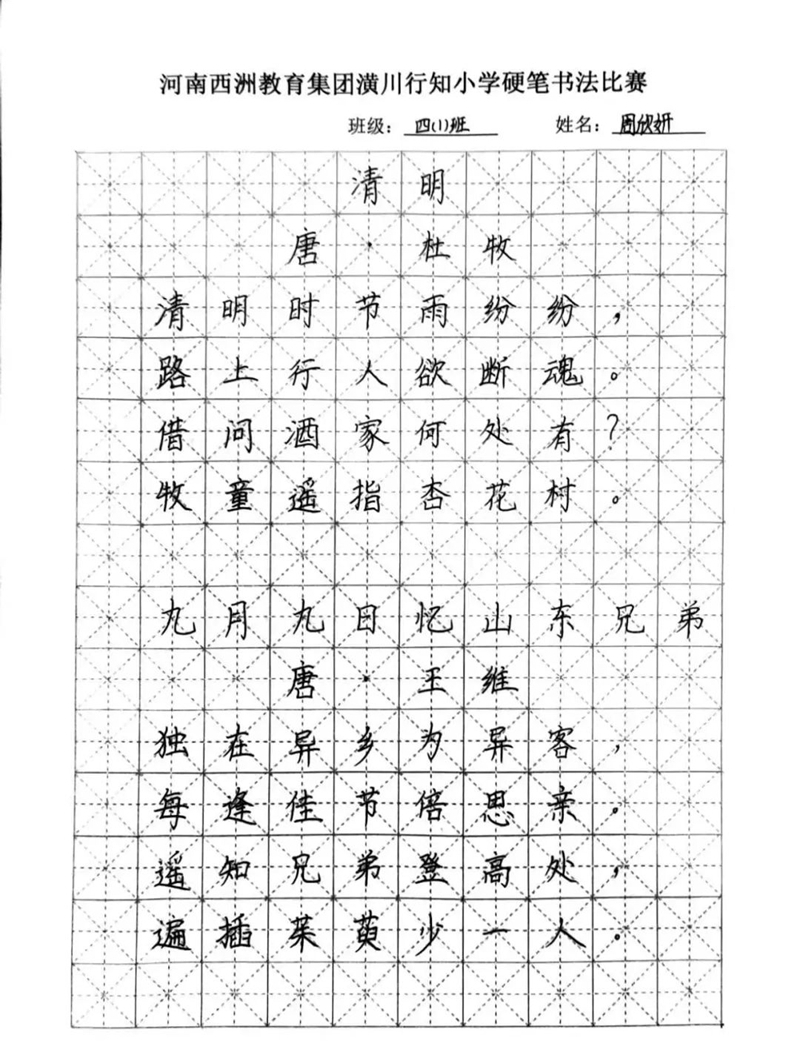 河南西洲教育集团潢川行知小学硬笔书法比赛
班级：四(1)班 姓名：周欣妍
清明
唐·杜牧
清明时节雨纷纷，
路上行人欲断魂。
借问酒家何处有？
牧童遥指杏花村。
九月九日忆山东兄弟
唐·王维
独在异乡为异客，
每逢佳节倍思亲。
遥知兄弟登高处，
遍插茱萸少一人。